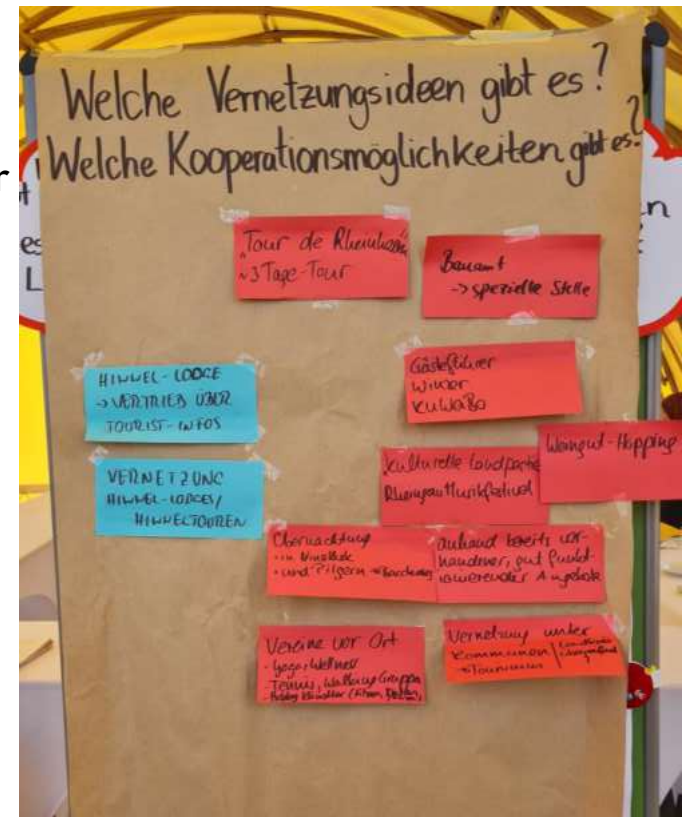 Welche Vernetzungsideen gibt es?
Welche Kooperationsmöglichkeiten gibt es?
"Tour de Rheinhessen"
~3 Tage-Tour
Bauamt
-> spezielle Stelle
HIWWEL-LODGE
-> VERTRIEB ÜBER
TOURIST-INFOS
Gästeführer
Winzer
KuWeBo
VERNETZUNG
HIWWEL-LODGES/
HIWWELTOUREN
Kulturelle Landpartie
Rheingau Musikfestival
Weingut-Hopping
Übernachtung
und Pilgern
anhand bereits vor-
handener, gut funkt-
ionierender Angebote
Vereine vor Ort
- Yoga, Wellness
- Tennis, Walking Gruppen
- Hobby Künstler
Vernetzung unter
Kommunen
Tourismus